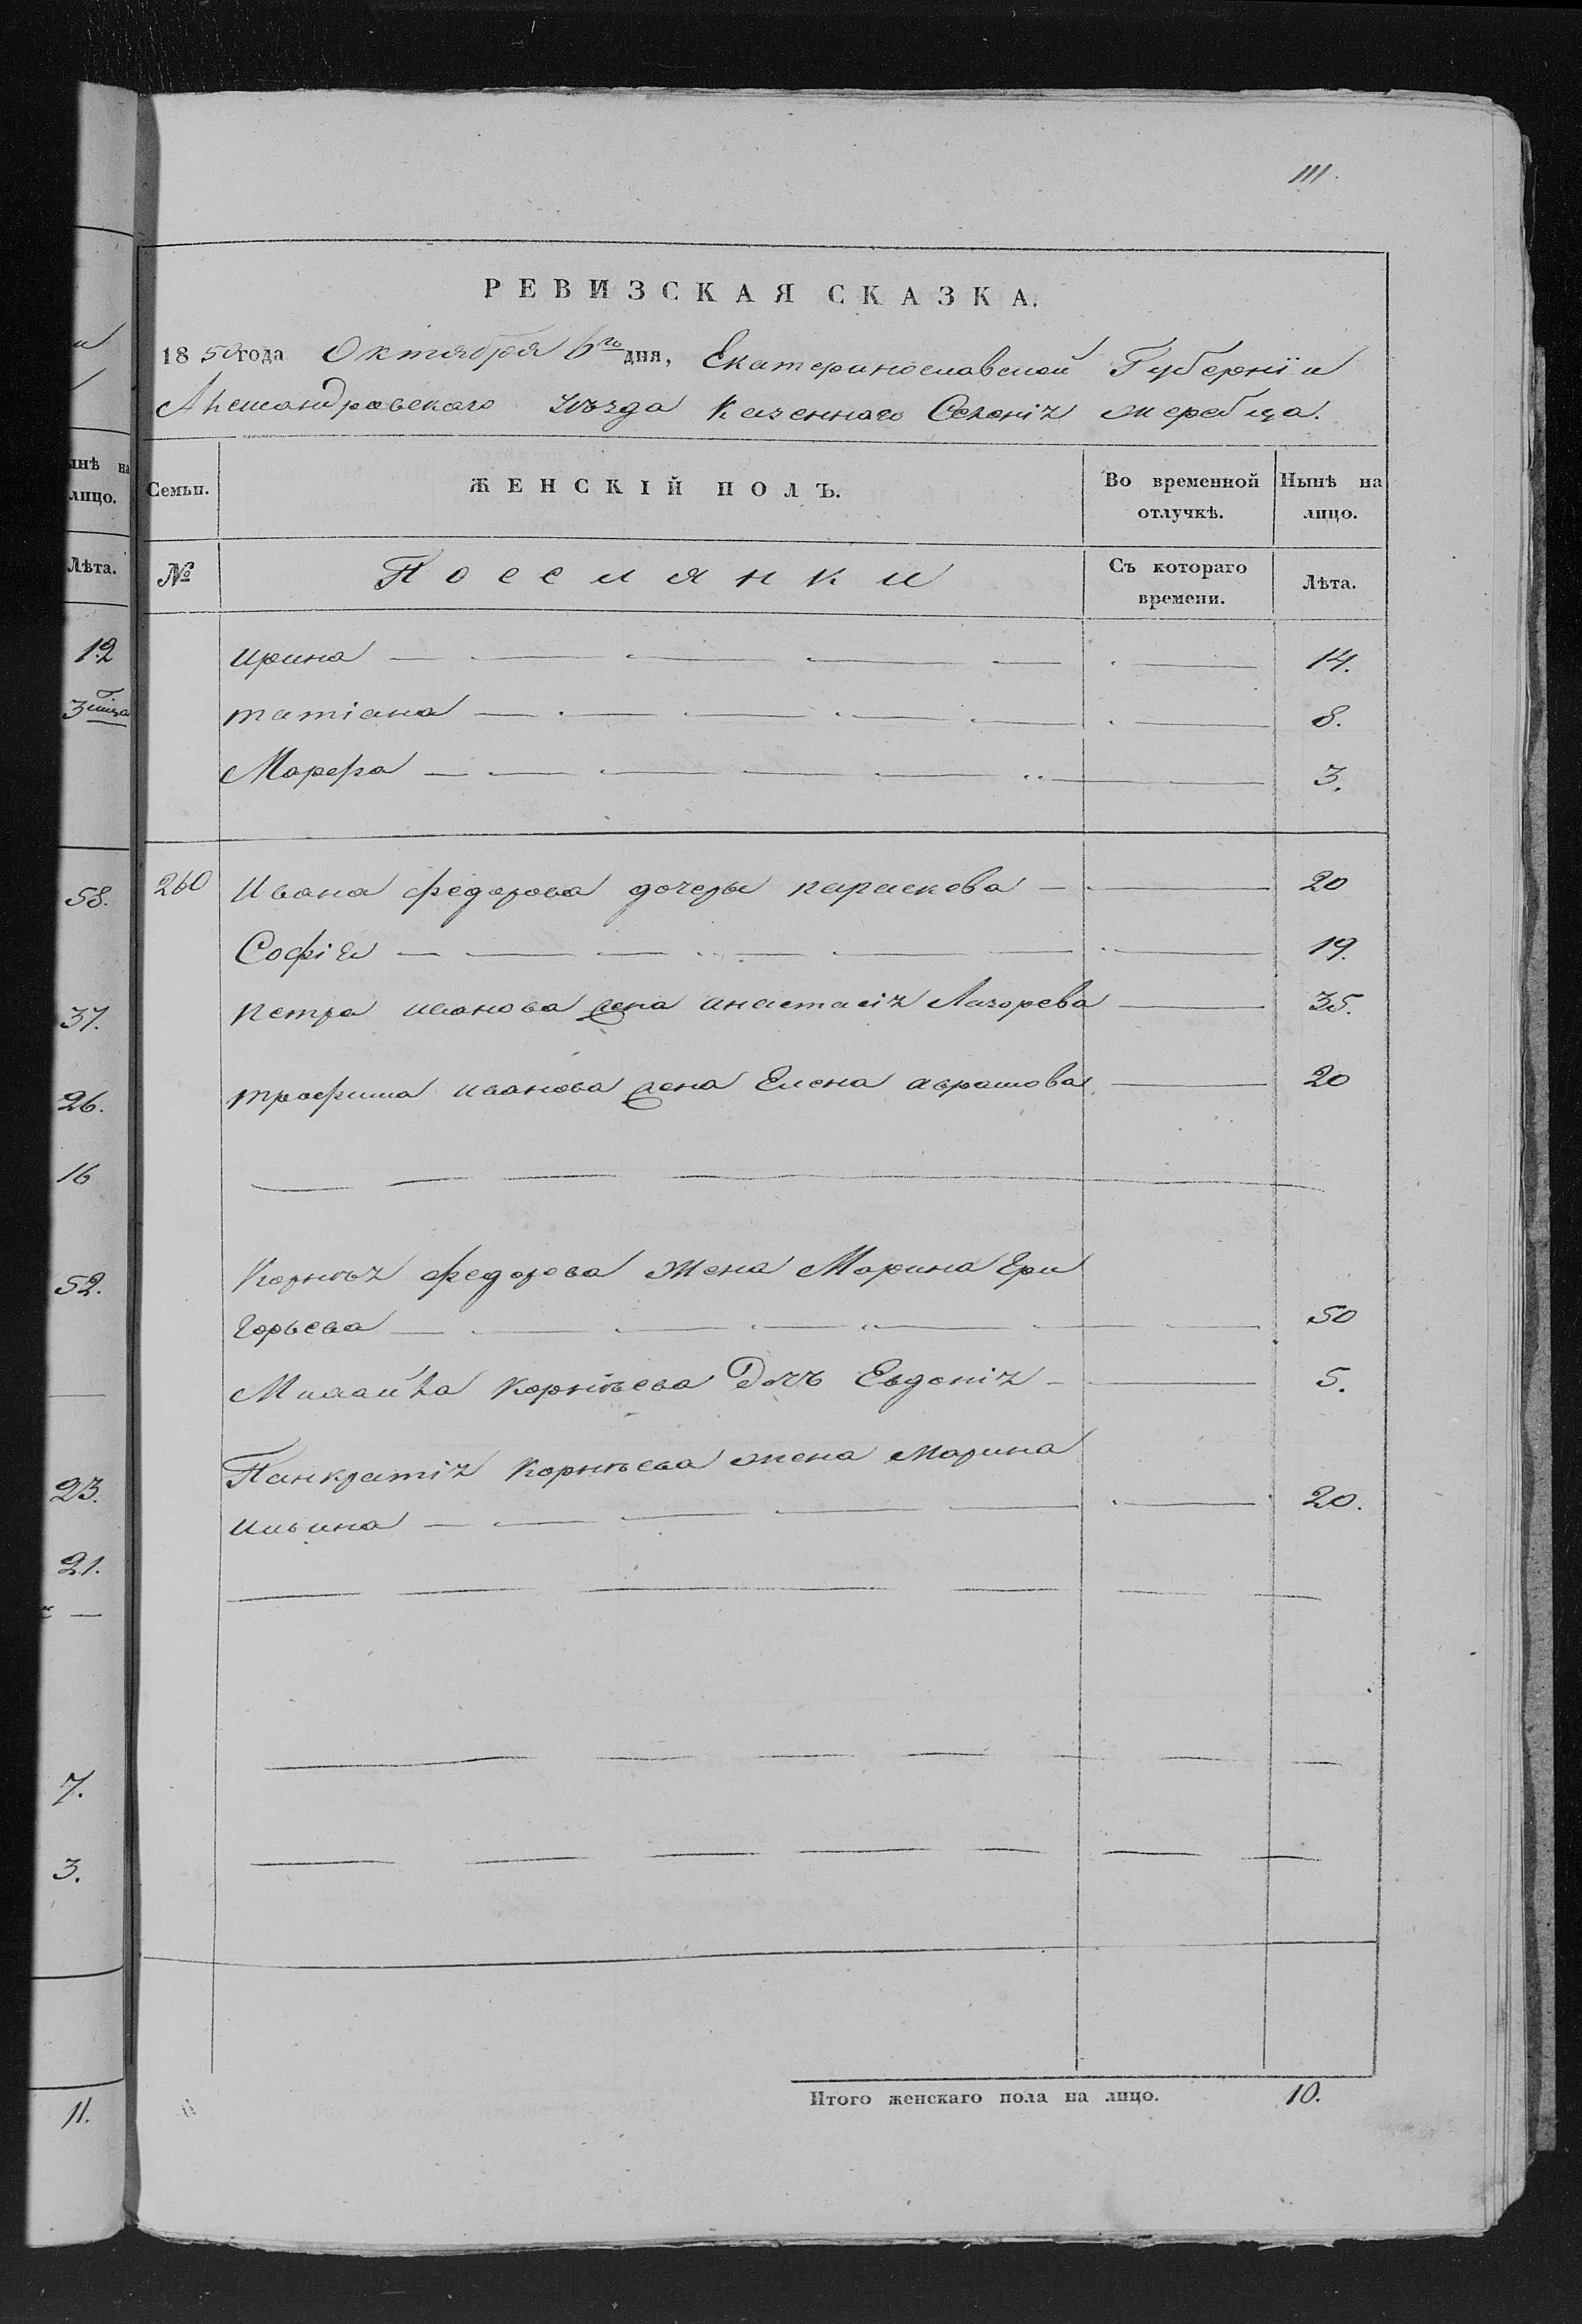 111.
РЕВИЗСКАЯ СКАЗКА.
1850 года Октября 6го дня, Екатеринославской Губернїи
Александровскаго уѣзда Казеннаго Селенія жеребца.
Семьи.
ЖЕНСКІЙ ПОЛЪ.
Во временной отлучкѣ.
Нынѣ на лицо.
№
Поселянки
Съ котораго времени.
Лѣта.
ирина 14.
татіана 8.
Марфа 3.
260 Ивана федорова дочеры параскева 20
Софія 19.
петра иванова жена анастасія Лазорева 35.
трофима иванова жена Елена аврамова 20
Корнѣя федорова жена Марина Гри
горьева 50
Михайла корнѣева Дочъ Евдокія 5.
Панкратія корнѣева жена марина
ильина 20.
Итого женскаго пола на лицо. 10.
нѣ на
лицо.
Лѣта.
12
3
58.
37.
26.
16
52.
23.
21.
7.
3.
11.